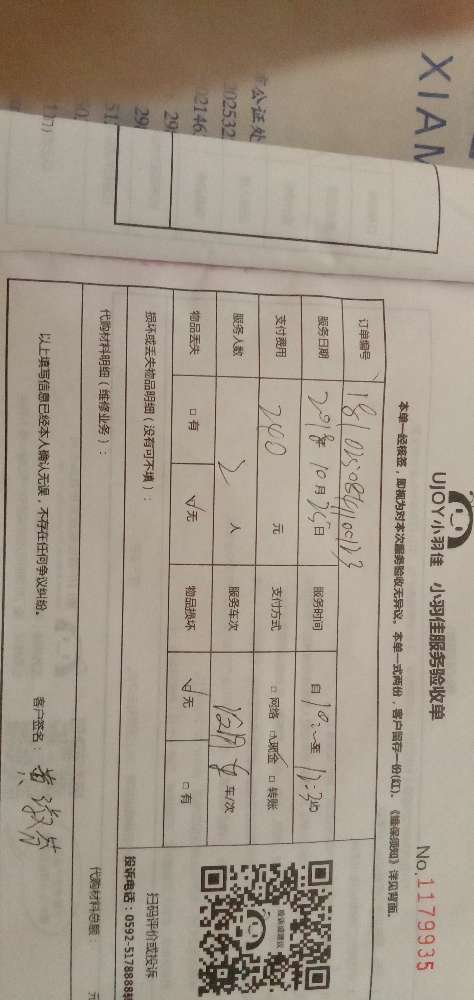 XIAM
市公证处
202532
02146
UJOY小羽佳 小羽佳服务验收单
No.1179935
本单一经核签，即视为对本次服务验收无异议。本单一式两份，客户留存一份(红)。《维保须知》详见背面。
订单编号
服务日期 2018年 10月 25日 服务时间 自 至
支付费用 240 元 支付方式 □ 网络 ☑ 现金 □ 转账
服务人数 2 人 服务车次 车/次
物品丢失 □ 有 ☑ 无 物品损坏 ☑ 无 □ 有
损坏或丢失物品明细（没有可不填）：
扫码评价或投诉
投诉电话：0592-5178888转
代购材料明细（维修业务）：
代购材料总额： 元
以上填写信息已经本人确认无误，不存在任何争议纠纷。 客户签名：